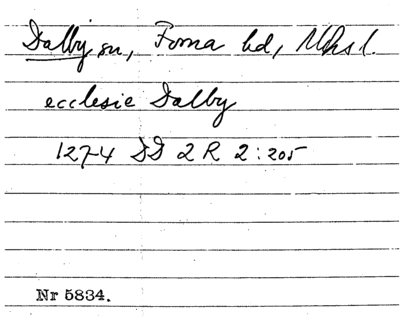 Dalby sn, Torna hd, Mhs l.
ecclesie Dalby
1274 SD 2 R 2:205
Nr 5834.